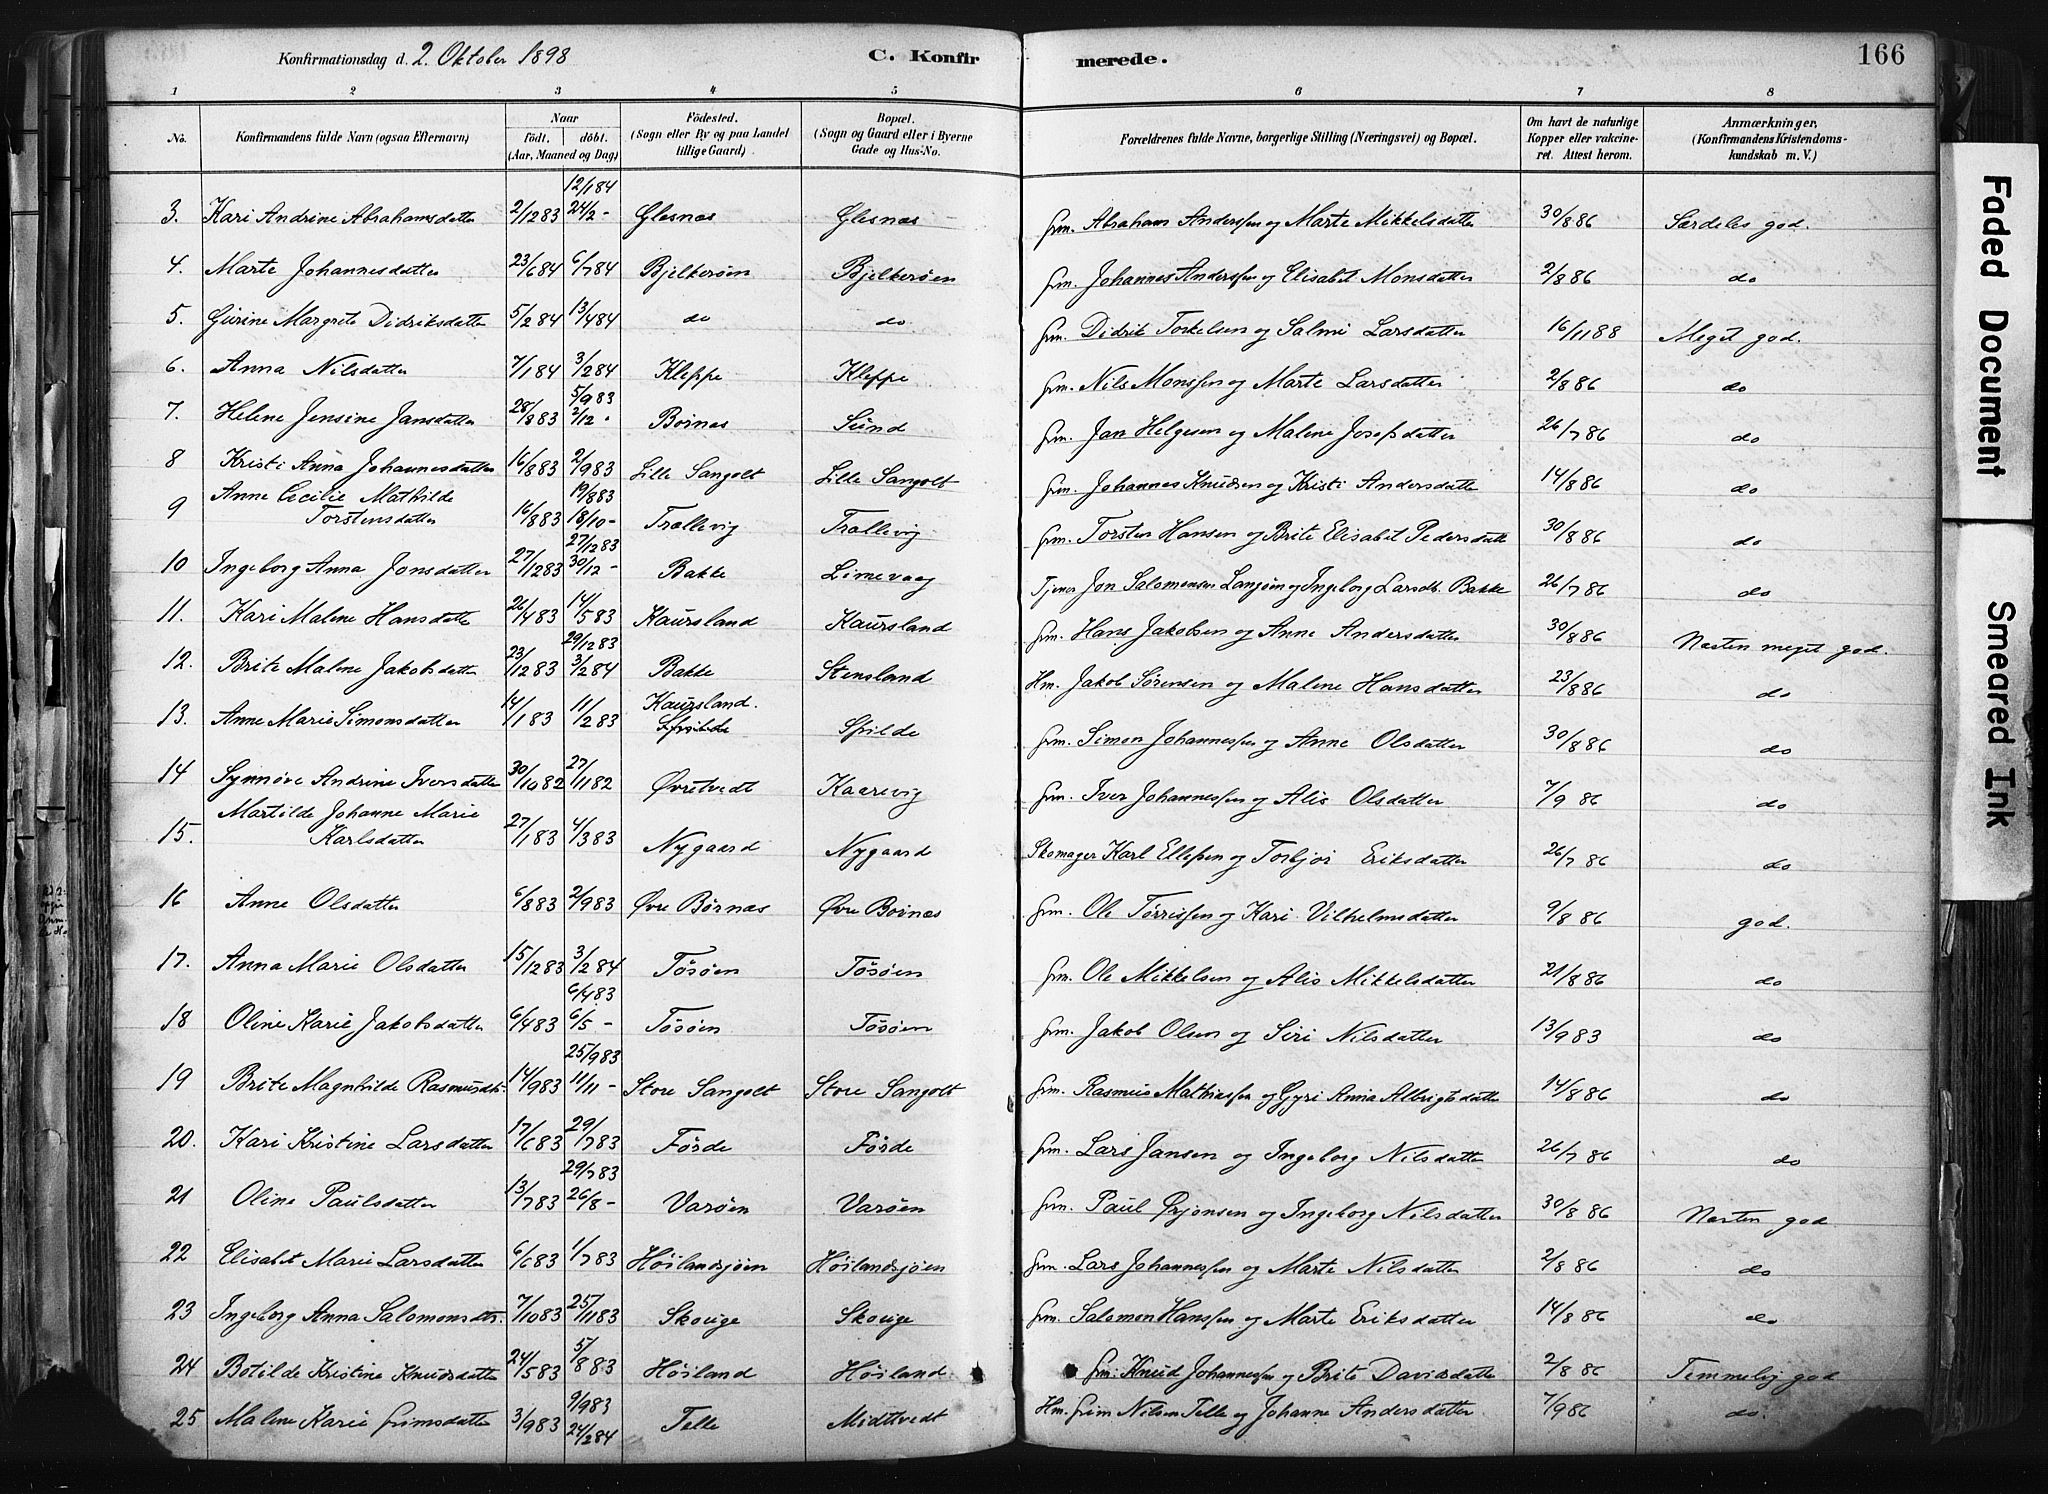 Konfirmationsdag d. 2. Oktober 1898 C. Konfirmerede. 166
1 2 3 4 5 6 7 8
No. Konfirmandens fulde Navn (ogsaa Efternavn) Naar født. døbt. (Aar, Maaned og Dag) Fødested. (Sogn eller By og paa Landet tillige Gaard) Bopæl. (Sogn og Gaard eller i Byerne Gade og Hus-No. Forældrenes fulde Navne, borgerlige Stilling (Næringsvei) og Bopæl. Om havt de naturlige Kopper eller vakcineret. Attest herom. Anmærkninger, (Konfirmandens Kristendomskundskab m. V.)
3. Kari Andrine Abrahamsdatter 2/1283 12/184 24/2- Glesnæs Glesnæs Grm. Abraham Anderssen og Marte Mikkelsdatter 30/886 Særdeles god.
4. Marte Johannesdatter 23/684 6/784 Bjelkerøen Bjelkerøen Grm. Johannes Anderssen og Elisabet Monsdatter 2/886 do
5. Gurine Margrete Didriksdatter 5/284 13/484 do do Grm. Didrik Torkelsen og Salmi Larsdatter 16/1188 Meget god.
6. Anna Nilsdatter 7/184 3/284 Kleppe Kleppe Grm. Nils Monssen og Marte Larsdatter 2/886 do
7. Helene Jensine Jansdatter 28/883 5/983 2/12- Børnæs Sund Grm. Jan Helgesen og Malene Josefsdatter 26/786 do
8 Kristi Anna Johannesdatter 16/883 2/983 Lille Sangolt Lille Sangolt Grm. Johannes Knudsen og Kristi Andersdatter 14/886 do
9 Anne Cecilie Mathilde Torstensdatter 16/883 19/883 18/10- Trællevig Trællevig Grm. Torsten Hansen og Brite Elisabet Pedersdatter 30/886 do
10 Ingeborg Anna Jonsdatter 27/1283 27/1283 30/12- Bakke Limevaag Tjener Jon Salomonsen Langøen og Ingeborg Larsdtr. Bakke 26/786 do
11. Kari Malene Hansdatter 26/483 14/583 Kaursland Kaursland Grm. Hans Jakobsen og Anne Andersdatter 30/886 Næsten meget god.
12. Brite Malene Jakobsdatter 23/1283 29/1283 3/284 Bakke Stensland Hm. Jakob Sørensen og Malene Hansdatter 23/886 do
13. Anne Marie Simonsdatter 14/183 11/283 Kaursland. Spilde Spilde Grm. Simon Johannessen og Anne Olsdatter 30/886 do
14 Synnøve Andrine Iversdatter 30/1082 27/1182 Øvretvedt Kaarevig Grm. Iver Johannessen og Alis Olsdatter 7/9 86 do
15. Martilde Johanne Marie Karlsdatter 27/183 4/383 Nygaard Nygaard Skomager Karl Ellefsen og Torbjør Eriksdatter 26/7 86 do
16 Anne Olsdatter 6/883 2/983 Øvre Børnæs Øvre Børnæs Grm. Ole Tørrissen og Kari Vilhelmsdatter 9/8 86 god.
17. Anna Marie Olsdatter 15/1283 3/284 Tøsøen Tøsøen Grm. Ole Mikkelsen og Alis Mikkelsdatter 21/886 do
18 Oline Karie Jakobsdatter 6/483 6/483 6/5- Tøsøen Tøsøen Grm. Jakob Olsen og Siri Nilsdatter 13/983 do
19 Brite Magnhilde Rasmusdtr. 14/983 25/983 11/11- Store Sangolt Store Sangolt Grm. Rasmus Mathiassen og Gyri Anna Albrigtsdatter 14/886 do
20. Kari Kristine Larsdatter 17/683 29/783 Førde Førde Grm. Lars Jansen og Ingeborg Nilsdatter 26/7 86 do
21 Oline Paulsdatter 13/783 29/783 26/8- Varøen Varøen Grm. Paul Ørjonsen og Ingeborg Nilsdatter 30/8 86 Næsten god
22 Elisabet Marie Larsdatter 6/683 1/783 Høilandsjøen Høilandsjøen Grm. Lars Johannessen og Marte Nilsdatter 2/8 86 do
23 Ingeborg Anna Salomonsdtr. 7/1083 25/1183 Skouge Skouge Grm. Salomon Hanssen og Marte Eriksdatter 14/8 86 do
24 Botilde Kristine Knudsdatter 24/583 5/883 Høiland Høiland Grm. Knud Johannessen og Brite Davidsdatter 2/8 86 Temmelig god
25 Malene Karie Grimsdatter 3/983 9/983 24/284 Telle Midttvedt Hm. Grim Nilsen Telle og Johanne Andersdatter 7/986 do.
Faded Document
Smeared Ink